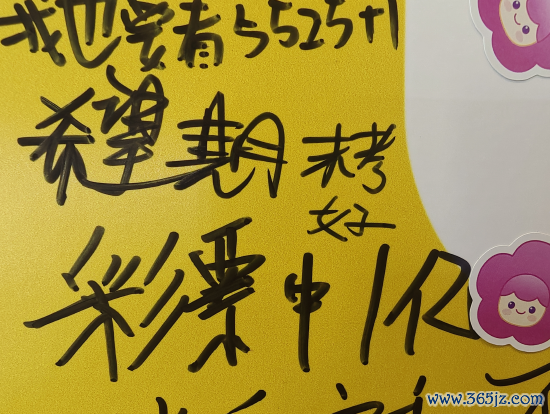 我也要看5525+1
希望期末考
好
彩票中1亿
www.365jz.com